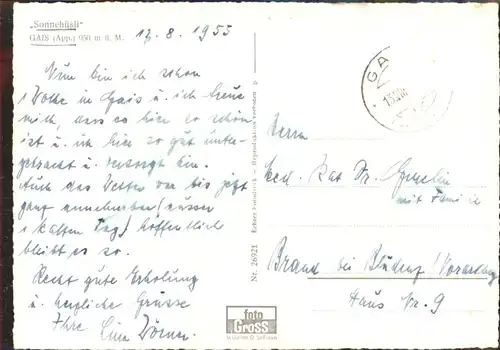 „Sonnehüsli"
GAIS (App.) 950 m ü. M.
12.8.1955
Nun bin ich schon
1 Woche in Gais u. ich freue
mich, dass es hier so schön
ist u. ich hier so gut unter-
gebracht u. versorgt bin.
Auch das Wetter war bis jetzt
ganz annehmbar (ausser
1 kalten Tag) hoffentlich
bleibt es so.
Recht gute Erholung
u. herzliche Grüsse
Ihre
Nr. 26921
GA
Herrn
Med. Rat Dr.
mit Familie
Brand bei Bludenz / Vorarlberg
Haus Nr. 9
foto
GROSS